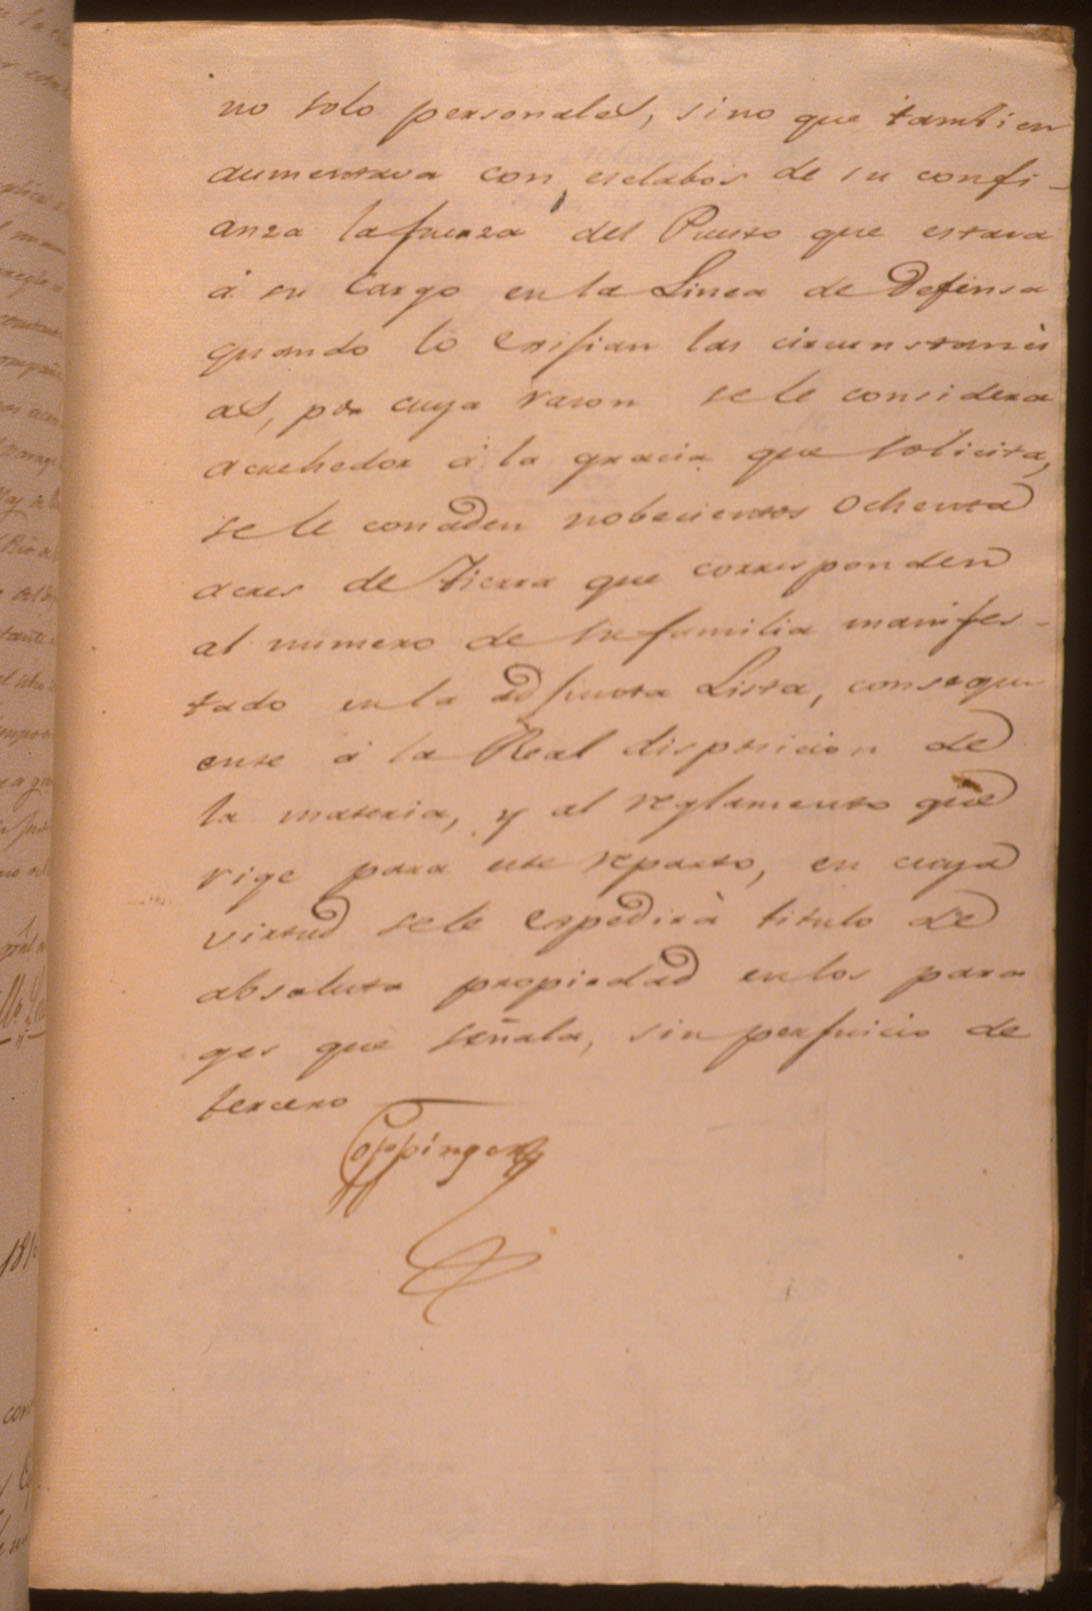 no solo personales, sino que tambien
aumentava con esclabos de su confi-
anza la fuerza del Puesto que estava
á su Cargo en la Linea de Defensa
quando lo Exisian las circunstanci
as, por cuya rason se le considera
acrehedor á la gracia que solicita,
se le conceden nobecientos ochenta
acres de Tierra que corresponden
al numero de su familia manifes-
tado en la adjunta Lista, consequ
ente á la Real disposicion de
la materia, y al reglamento que
rige para este reparto, en cuya
virtud se le Espedirà titulo de
absoluta propiedad en los para
ges que señala, sin perjuicio de
tercero
Coppinger